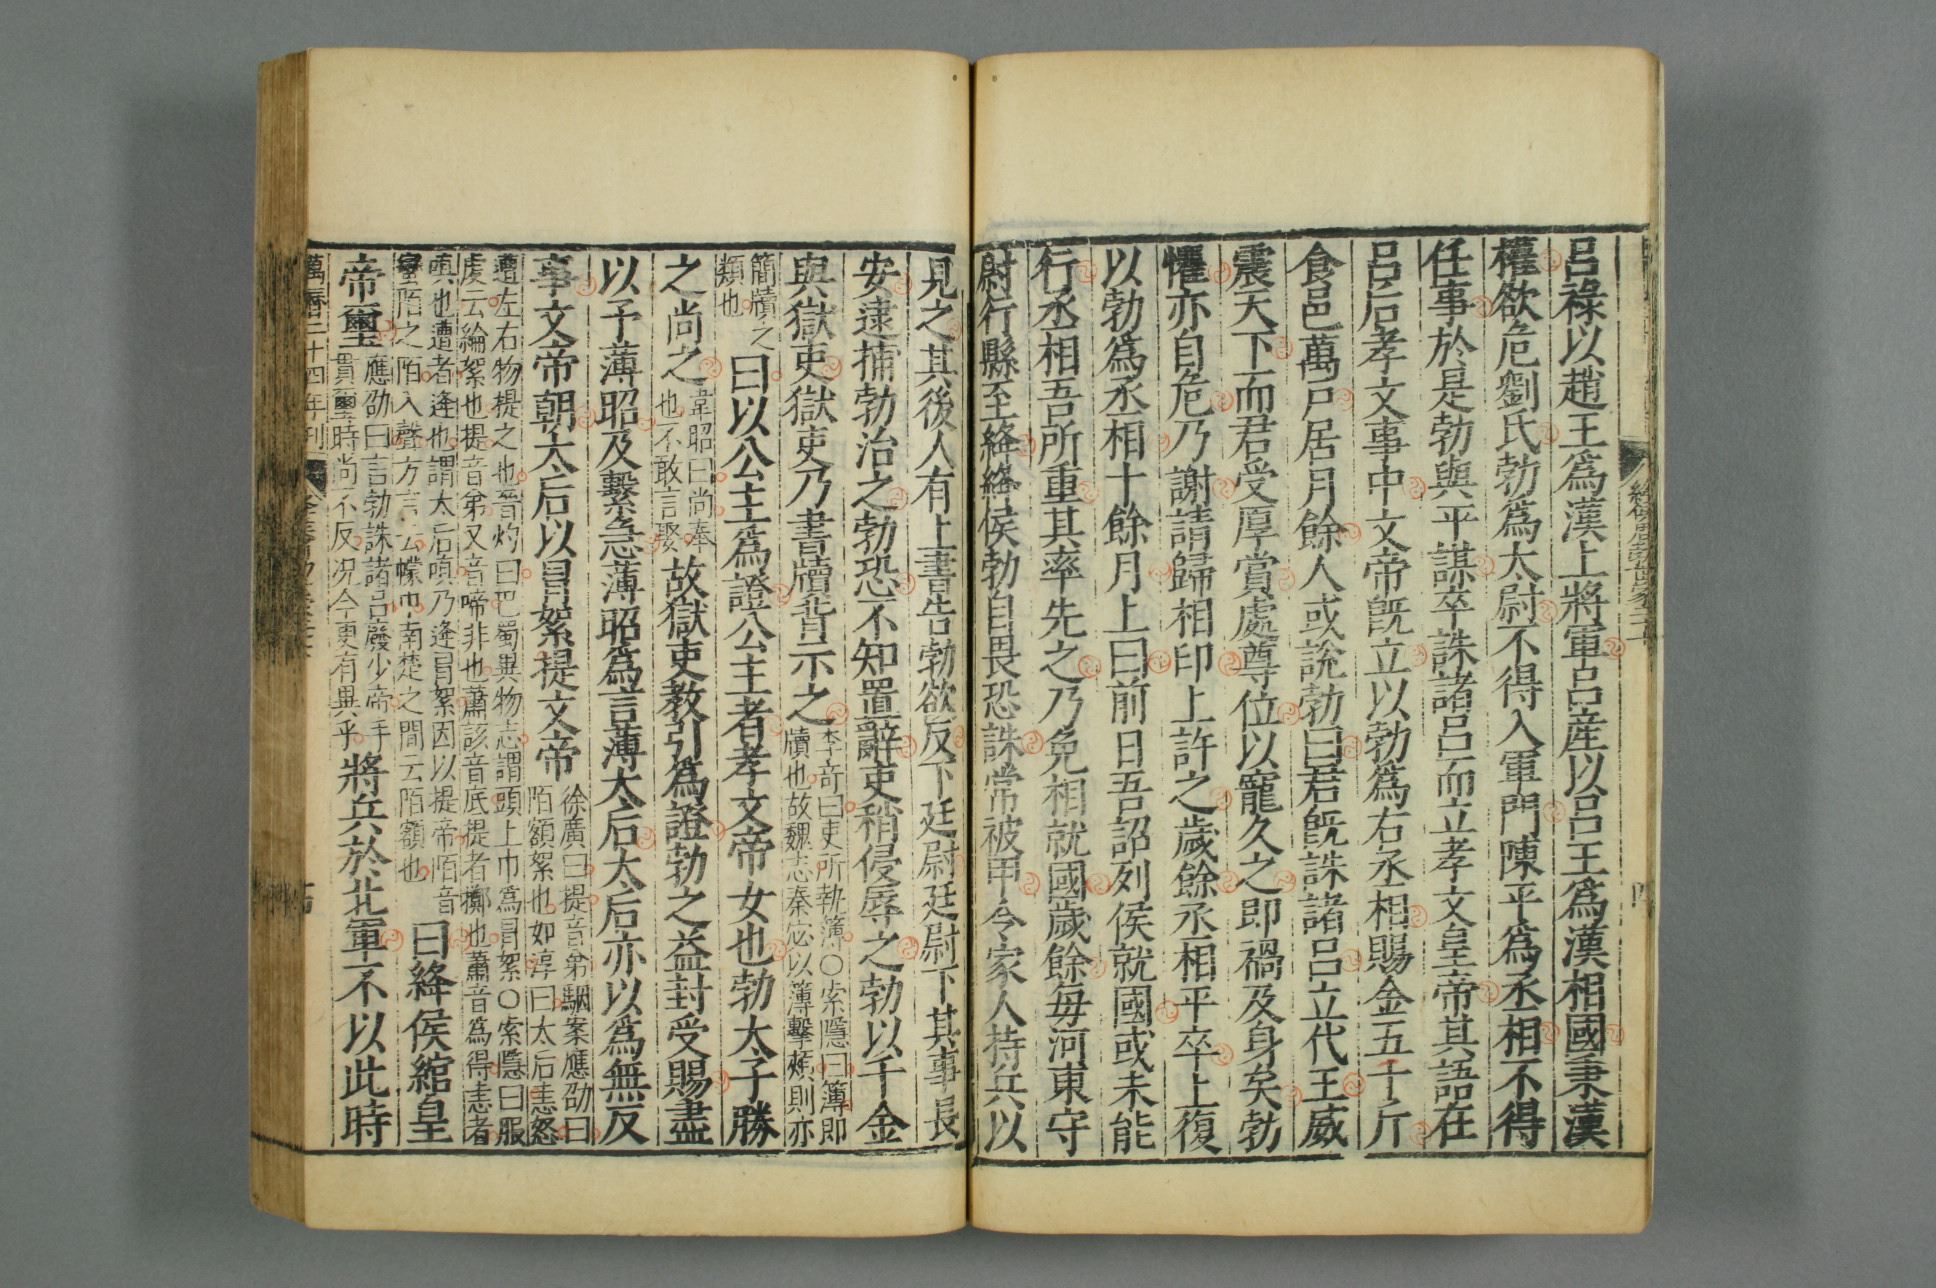 呂祿以趙王爲漢上將軍呂産以呂王爲漢相國秉漢
權欲危劉氏勃爲太尉不得入軍門陳平爲丞相不得
任事於是勃與平謀卒誅諸呂而立孝文皇帝其語在
呂后孝文事中文帝旣立以勃爲右丞相賜金五千斤
食邑萬戶居月餘人或說勃曰君旣誅諸呂立代王威
震天下而君受厚賞處尊位以寵久之即禍及身矣勃
懼亦自危乃謝請歸相印上許之歲餘丞相平卒上復
以勃爲丞相十餘月上曰前日吾詔列侯就國或未能
行丞相吾所重其率先之乃免相就國歲餘每河東守
尉行縣至絳絳侯勃自畏恐誅常被甲令家人持兵以
見之其後人有上書告勃欲反下廷尉廷尉下其事長
安逮捕勃治之勃恐不知置辭吏稍侵辱之勃以千金
與獄吏獄吏乃書牘背示之李奇曰吏所執簿○索隱曰簿即
牘也故魏志秦宓以簿擊頰則亦
簡牘之
類也曰以公主爲證公主者孝文帝女也勃太子勝
之尚之韋昭曰尚奉
也不敢言娶故獄吏教引爲證勃之益封受賜盡
以予薄昭及繫急薄昭爲言薄太后太后亦以爲無反
事文帝朝太后以冒絮提文帝徐廣曰提音弟駰案應劭曰
陌額絮也如淳曰太后恚怒
遭左右物提之也晉灼曰巴蜀異物志謂頭上巾爲冒絮○索隱曰服
虔云綸絮也提音弟又音啼非也蕭該音底提者擲也蕭音爲得恚者
嗔也遭者逢也謂太后嗔乃逢冒絮因以提帝陌音
蠻陌之陌入聲方言云幪巾南楚之間云陌額也曰絳侯綰皇
帝璽應劭曰言勃誅諸呂廢少帝手
貫璽時尚不反况今更有異乎將兵於北軍不以此時
萬曆二十四年刊